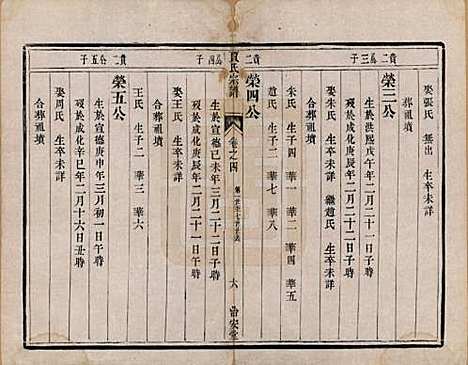 娶張氏 無出
合葬祖墳
榮三公
生於洪熙戊午年二月二十一日
歿於成化庚辰年二月二十一日午時
娶朱氏 生卒未詳 繼趙氏 生卒未詳
合葬祖墳
朱氏 生子四 華一 華二 華四 華五
趙氏 生子二 華七 華八
榮四公
生於宣德己未年三月二十二日子時
歿於成化庚辰年二月二十一日午時
娶王氏 生卒未詳
合葬祖墳
宗譜
卷之四
六
王氏 生子二 華三 華六
榮五公
生於宣德庚申年三月初一日午時
歿於成化辛巳年二月十六日丑時
娶周氏 生卒未詳
合葬祖墳